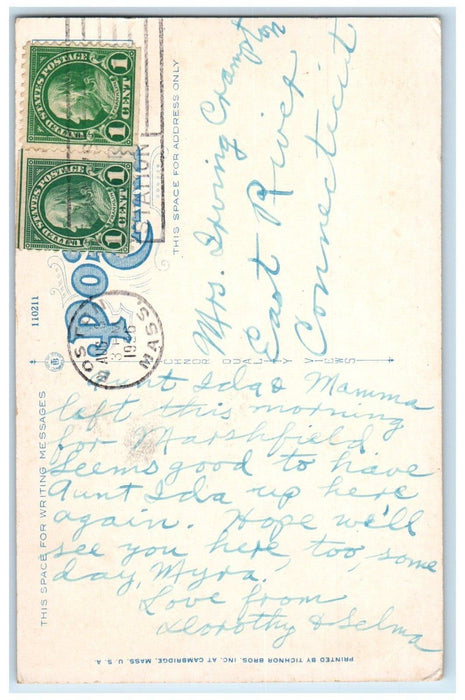 UNITED STATES POSTAGE
1 CENT 1
FRANKLIN
UNITED STATES POSTAGE
1 CENT 1
FRANKLIN
STATION
BOSTON
AUG
3
1926
MASS.
Post
THIS SPACE FOR ADDRESS ONLY
Mrs. Irving Crampton
East River
Connecticut
110211
TICHNOR QUALITY VIEWS
THIS SPACE FOR WRITING MESSAGES
Aunt Ida & Mamma
left this morning
for Marshfield
Seems good to have
Aunt Ida up here
again. Hope we'll
see you here, too, some
day, Myra.
Love from
Dorothy & Selma
PRINTED BY TICHNOR BROS. INC. AT CAMBRIDGE, MASS. U. S. A.